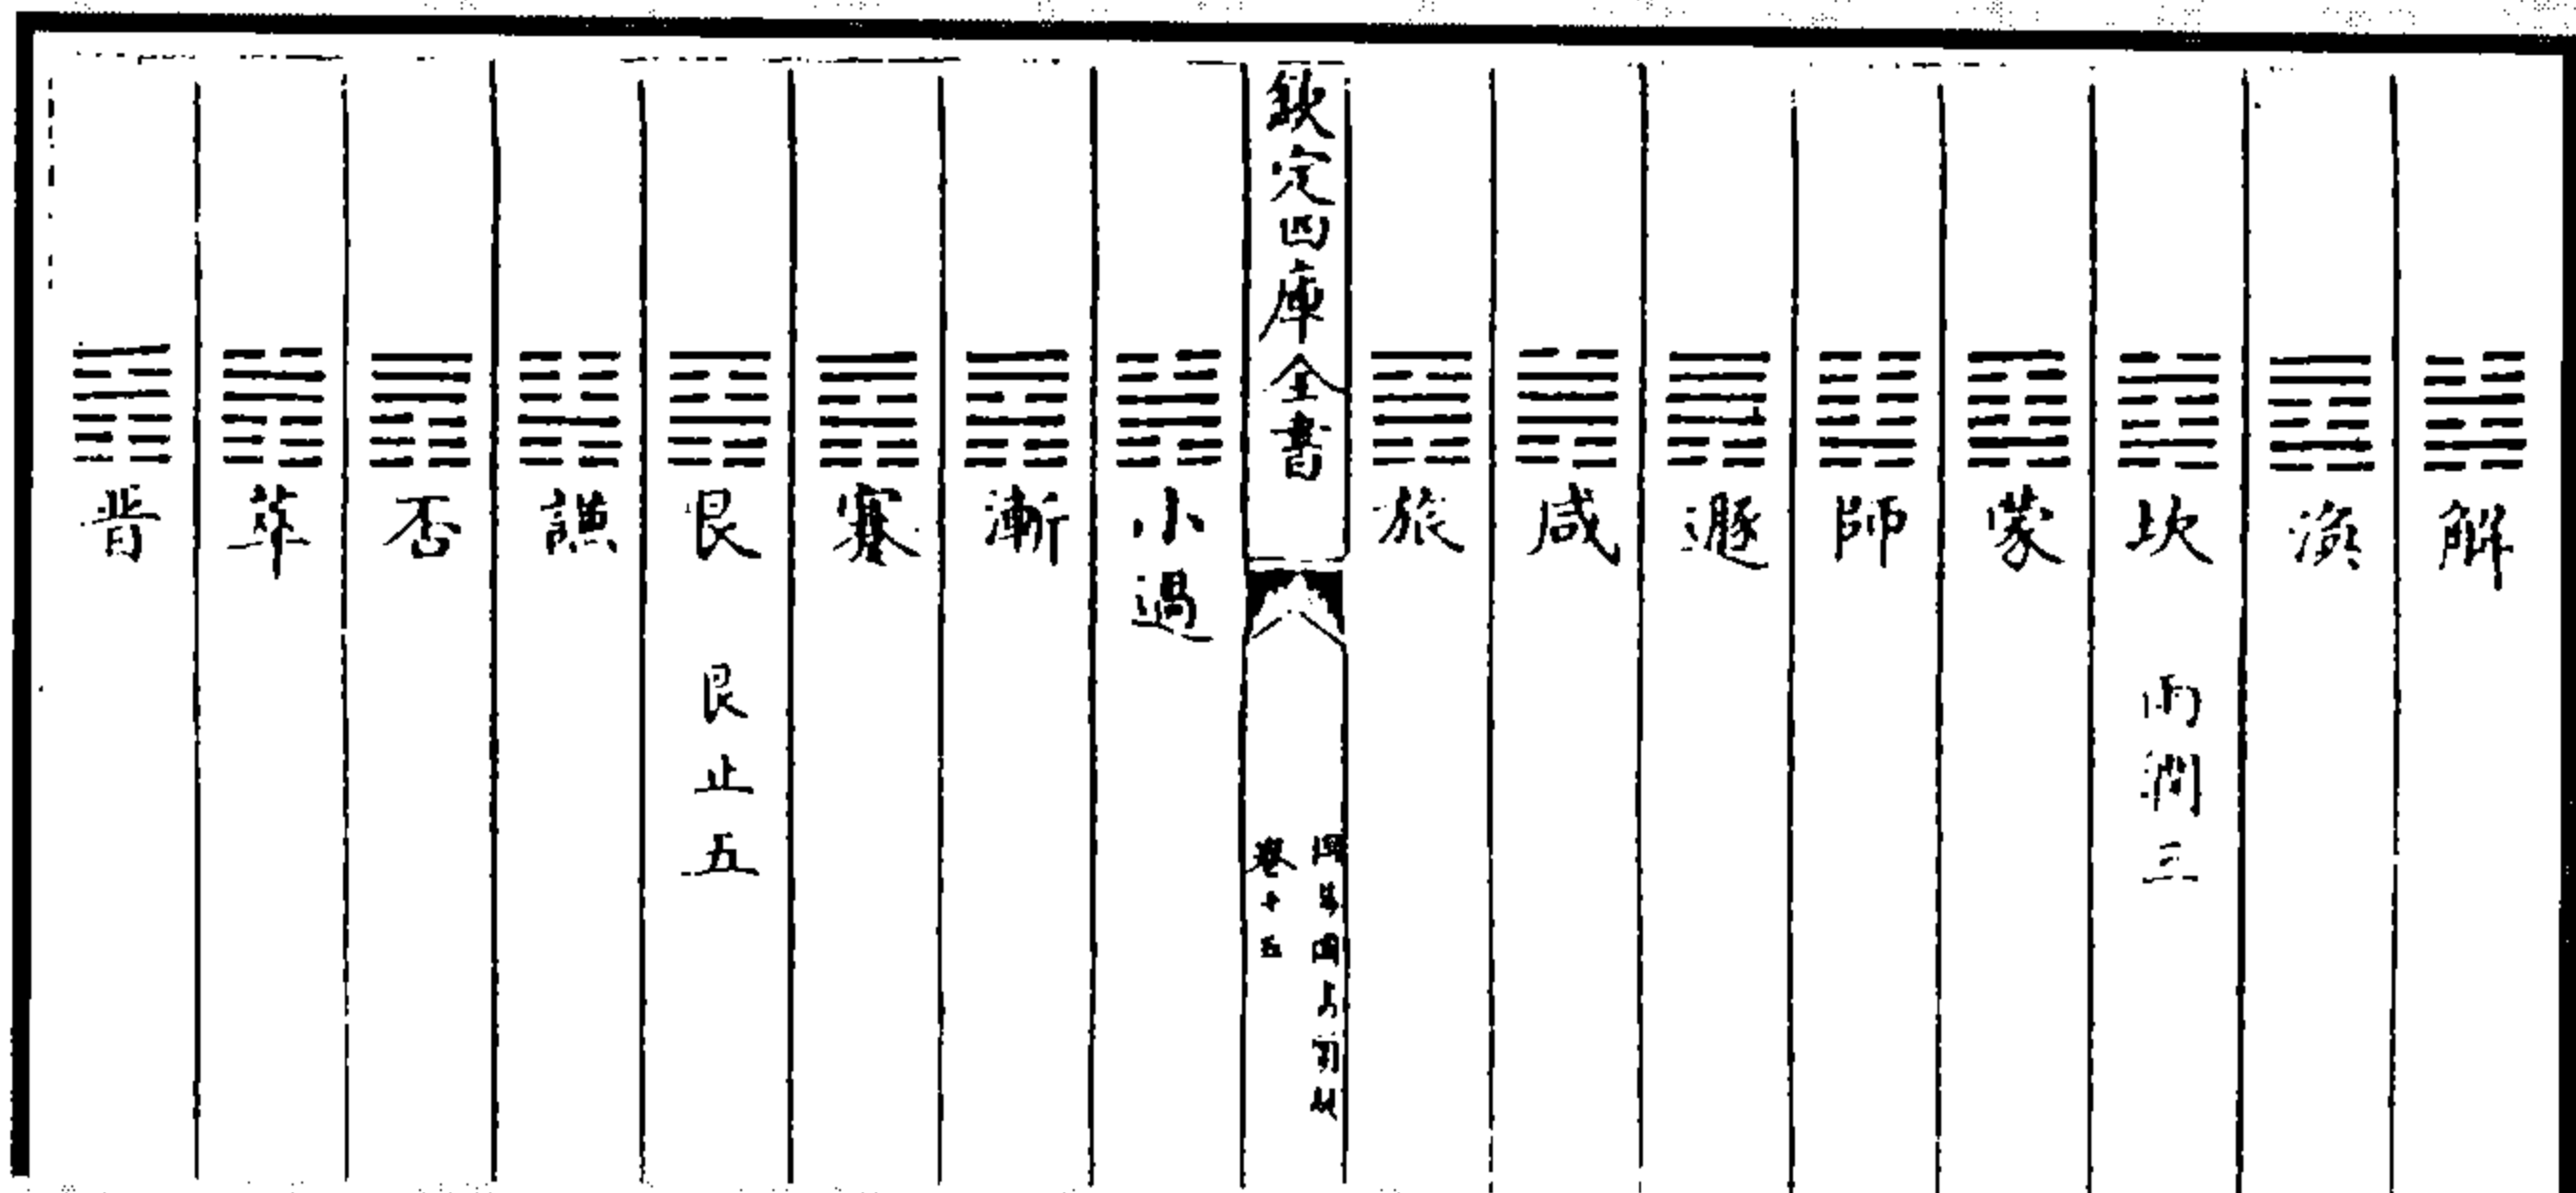 解
渙
坎 雨潤三
蒙
師
遯
咸
旅
欽定四庫全書
卷十五
小過
漸
蹇
艮 艮止五
謙
否
萃
晉